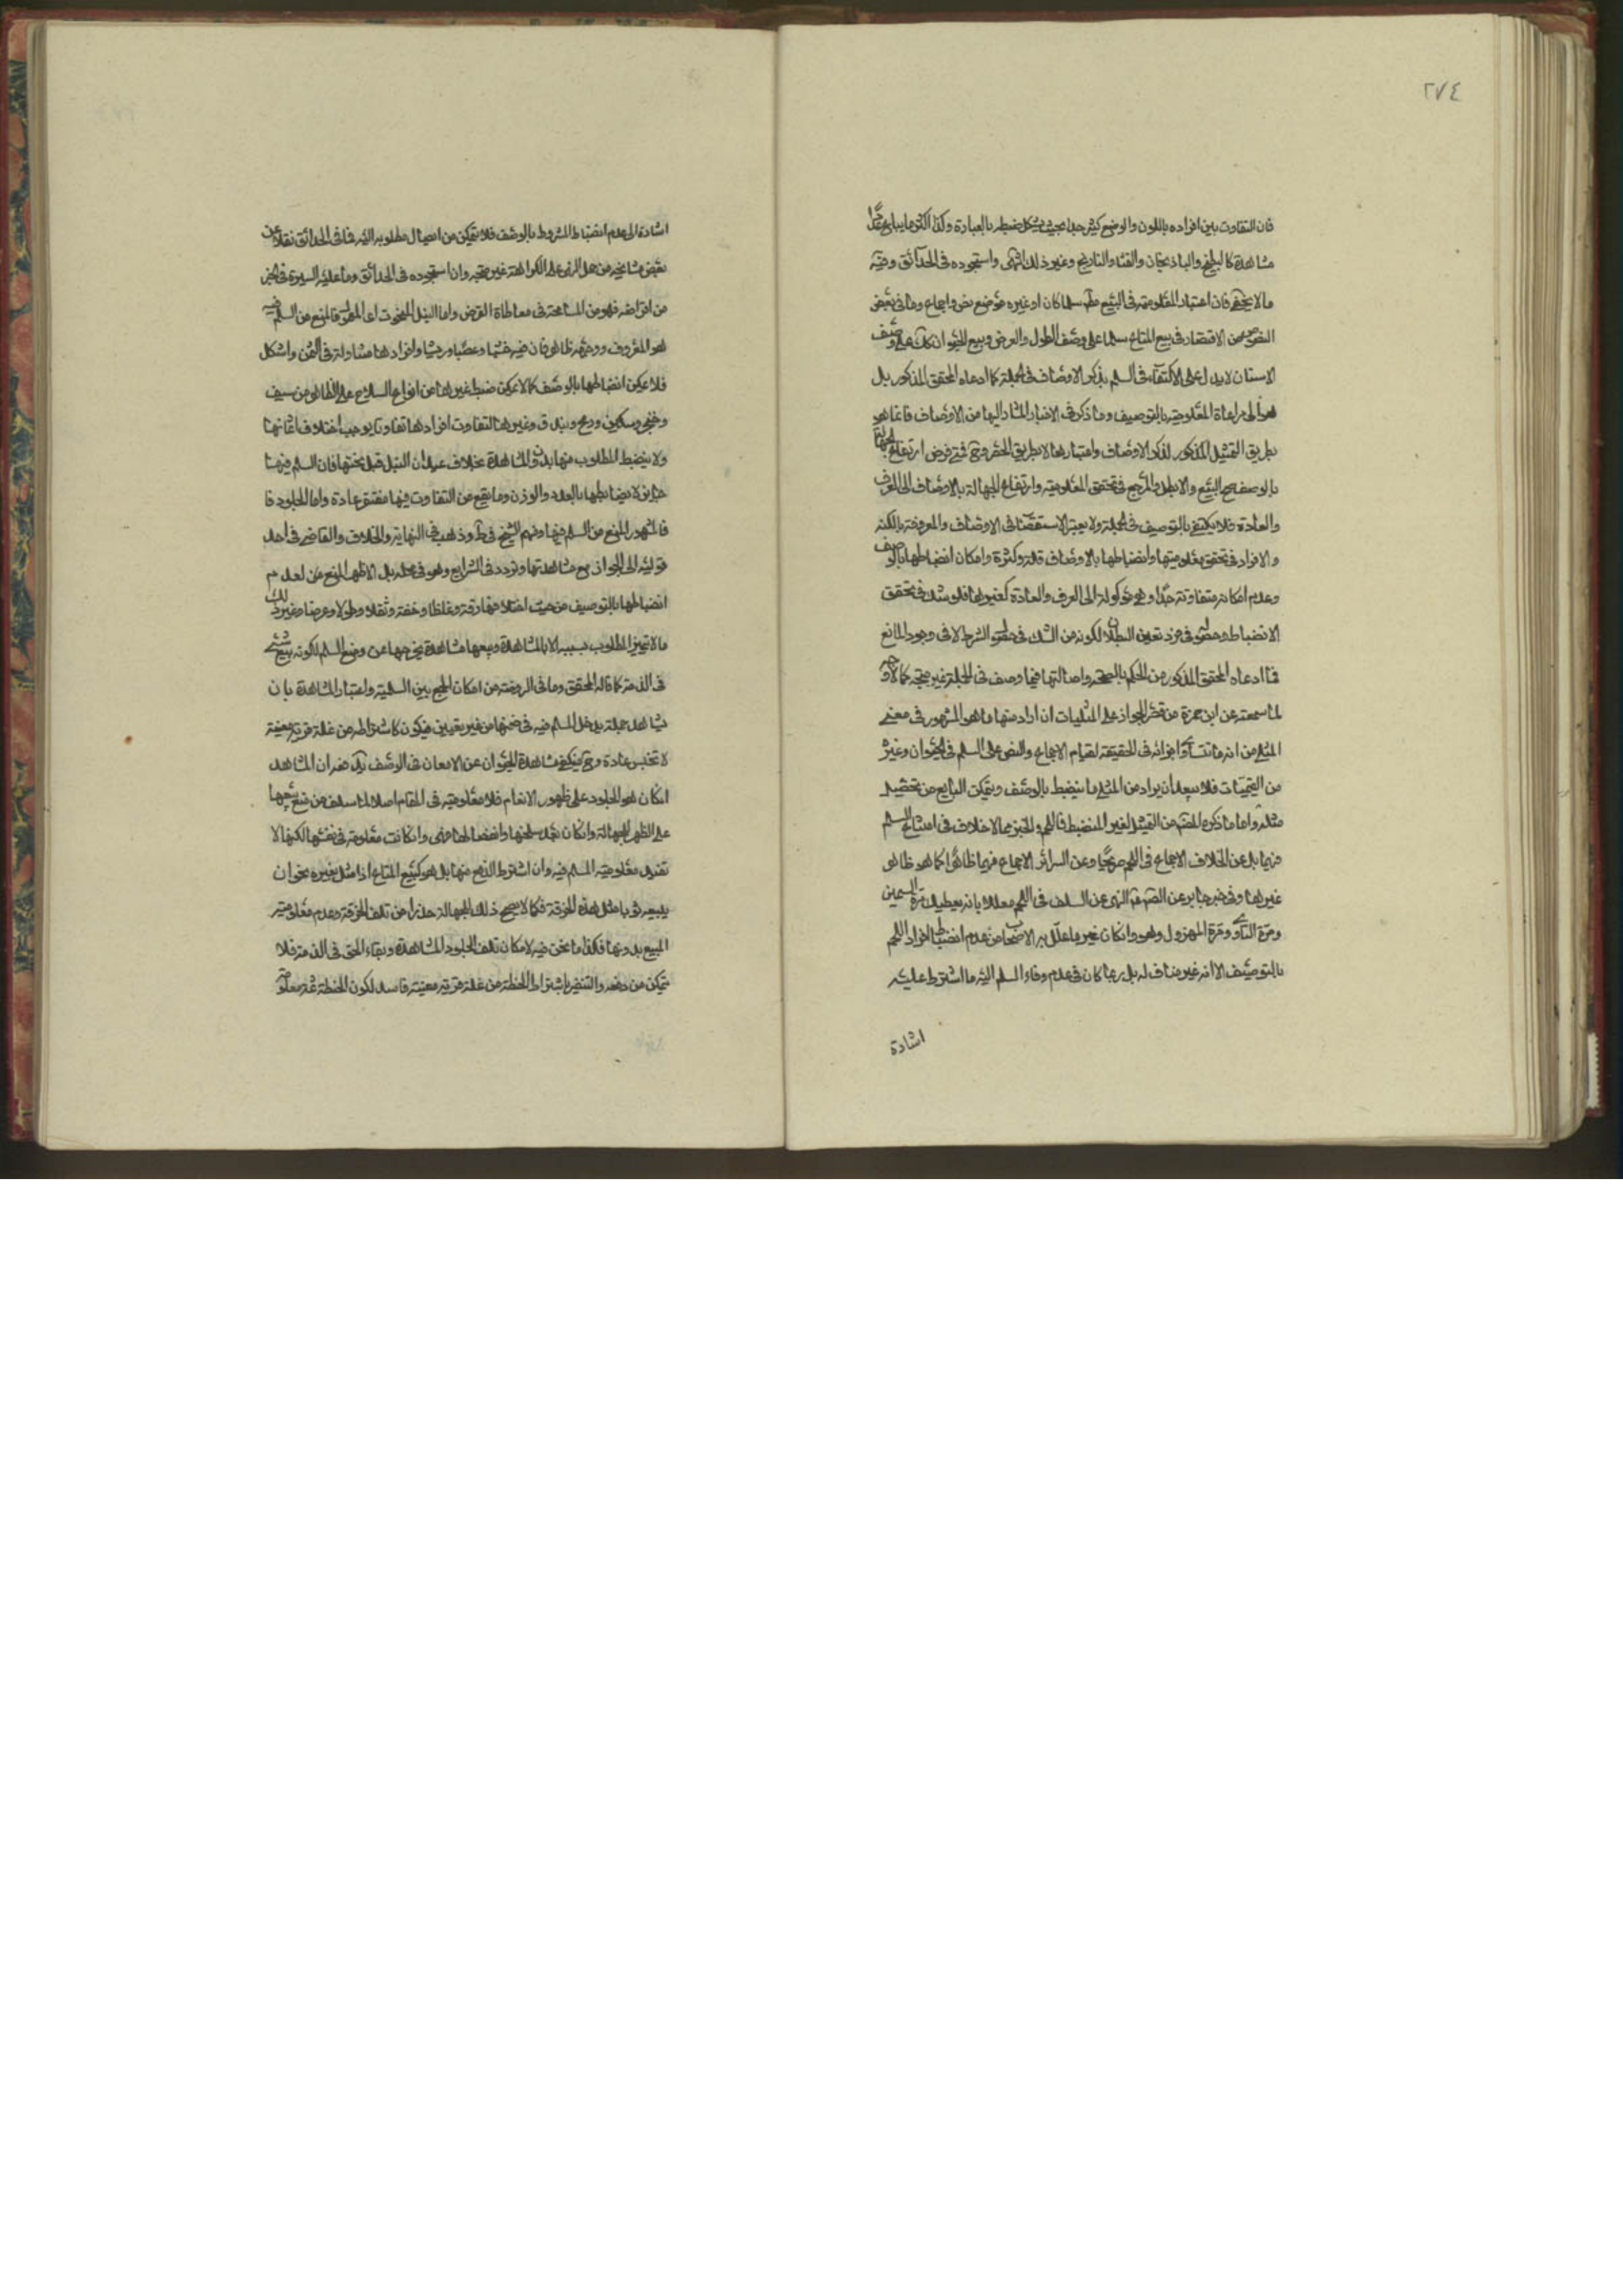 ٢٧٤
فان التفاوت بين افراده باللون والوضع كثير جدا بحيث يشكل ضبطه بالعبارة وكذا اكثر ما يباع عدًّا
مشاهدة كالبطيخ والباذنجان والقثاء والنارنج وغير ذلك انتهى واستجوده فى الحدائق وفيه
ما لا يخفى فان اعتبار المعلومية فى البيع مط سلما كان او غيره موضع نص واجماع وما فى بعض
النصوص من الاقتصار فى بيع المتاع سلما على وصف الطول والعرض وبيع الحيوان كك على وصف
الاسنان لا يدل على الاكتفاء فى السلم بذكر الاوصاف فى الجملة كما ادعاه المحقق المذكور بل
هو الى مراعاة المعلومية بالتوصيف وما ذكر فى الاخبار المشار اليها من الاوصاف فانما هو
بطريق التمثيل المذكور لذكر الاوصاف واعتبارها لا بطريق الحصر وح فمتى فرض ارتفاع الجهالة
بالوصف صح البيع والا بطل والمرجع فى تحقق المعلومية وارتفاع الجهالة بالاوصاف الى العرف
والعادة فلا يكتفى بالتوصيف فى الجملة ولا يعتبر الاستقصاء فى الاوصاف والمعرفة بالكنه
والافراد فى تحقق معلوميتها وانضباطها بالاوصاف قلة وكثرة وامكان انضباطها بالوصف
وعدم امكانه متفاوتة جدًّا وهى موكولة الى العرف والعادة كغيرها فلو شك فى تحقق
الانضباط وحصوله فى فرد تعين البطلان لكونه من الشك فى حصول الشرط لا فى وجود المانع
فما ادعاه المحقق المذكور من الحكم بالصحة واصالتها فيما وصف فى الجملة غير متجه كما لا وجه
لما سمعته عن ابن حمزة من قصر الجواز على المثليات ان اراد منها ما هو المشهور فى معنى
المثلى من انه ما تتساوى اجزائه فى الحقيقة لقيام الاجماع والنص على السلم فى الحيوان وغيره
من القيميات فلا يبعد ان يراد من المثلى ما ينضبط بالوصف ويتمكن البايع من تحصيل
مثله واما ما ذكره المصنف من التمثيل لغير المنضبط فاللحم والخبز مما لا خلاف فى امتناع السلم
فيهما بل عن الخلاف الاجماع فى اللحم صريحًا وعن السرائر الاجماع فيهما ظاهرًا كما هو ظاهر
غيرها وفى خبر جابر عن الصم النهى عن السلف فى اللحم معللا بانه يعطيك مرة السمين
ومرة التاوى ومرة المهزول وهو وان كان غير ما علل به الاصحاب من عدم انضباط افراد اللحم
بالتوصيف الا انه غير مناف له بل ربما كان فى عدم وفاء المسلم اليه ما اشترط عليه
اشارة
اشارة الى عدم انضباط المشروط بالوصف فلا يتمكن من ايصال مطلوبه اليه فما فى الحدائق نقلا عن
بعض مشايخه من حمل النهى على الكراهة غير متجه وان استجوده فى الحدائق وما عليه السيرة فى الخبز
من اقراضه فهو من المسامحة فى معاطاة القرض واما النبل المنحوت اى المعمول فالمنع من السلم فيه
هو المعروف ووجهه ظاهر فان فيه خشبا وعصبا وريشا وافرادها متفاوتة فى الثمن واشكل
فلا يمكن انضباطها بالوصف كما لا يمكن ضبط غيرها من انواع السلاح على الظاهر من سيف
وخنجر وسكين ودرع وبندق وغيرها لتفاوت افرادها تفاوتا يوجب اختلاف اثمانها
ولا ينضبط المطلوب منها بدون المشاهدة بخلاف عيدان النبل قبل نحتها فان السلم فيها
جايز لانضباطها بالعدد والوزن وما يقع من التفاوت فيها مغتفر عادة واما الجلود فا
فالمشهور المنع من السلم فيها ومنهم الشيخ فى ط وذهب فى النهاية والخلاف والقاضى فى احد
قوليه الى الجواز مع مشاهدتها وتردد فى الشرايع وهو فى محله بل الاظهر المنع من لعدم
انضباطها بالتوصيف من حيث اختلافها رقة وغلظا وخفة وثقلا وطولا وعرضا وغير ذلك
ما لا يتميز المطلوب بسببه الا بالمشاهدة وبيعها مشاهدة يخرجها عن وضع السلم لكونه بيع شئ
فى الذمة كما قاله المحقق وما فى الروضة من امكان الجمع بين السلمية واعتبار المشاهدة بان
يشاهد جملة يدخل المسلم فيه فى ضمنها من غير تعيين فيكون كاشتراطه من غلة قرية معينة
لا تخيس عادة وح فيكفى مشاهدة الحيوان عن الامعان فى الوصف يرد عليه ان المشاهد
ان كان هو الجلود على ظهور الانعام فلا معلومية فى المقام اصلا لما سلف من منع بيعها
على الظهر للجهالة وان كان بعد سلخها وانفصالها فهى وان كانت معلومة فى نفسها لكنها لا
تفيد معلومية المسلم فيه وان اشترط الدفع منها بل هو كبيع المتاع اذا مثل بغيره نحو ان
يبيعه ثوبا مثل هذه الخرقة فكما لا يصح ذلك للجهالة حذرا من تلف الخرقة وعدم معلومية
المبيع بدونها فكذا ما نحن فيه لامكان تلف الجلود المشاهدة وبقاء الحق فى الذمة فلا
يتمكن من دفعه والتنظير باشتراط الحنطة من غلة قرية معينة فاسد لكون الحنطة غير معلومة